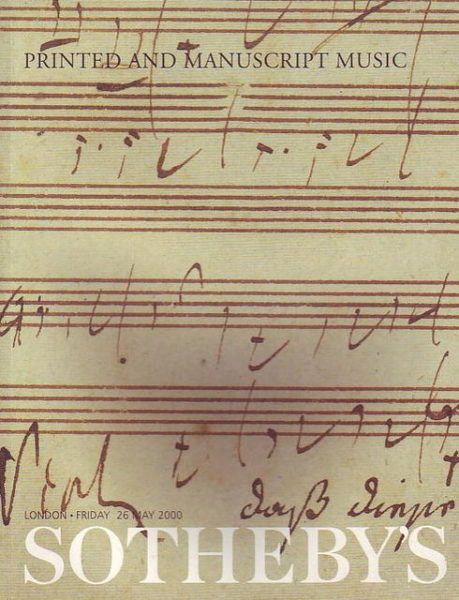 PRINTED AND MANUSCRIPT MUSIC
daß
LONDON • FRIDAY 26 MAY 2000
SOTHEBY'S